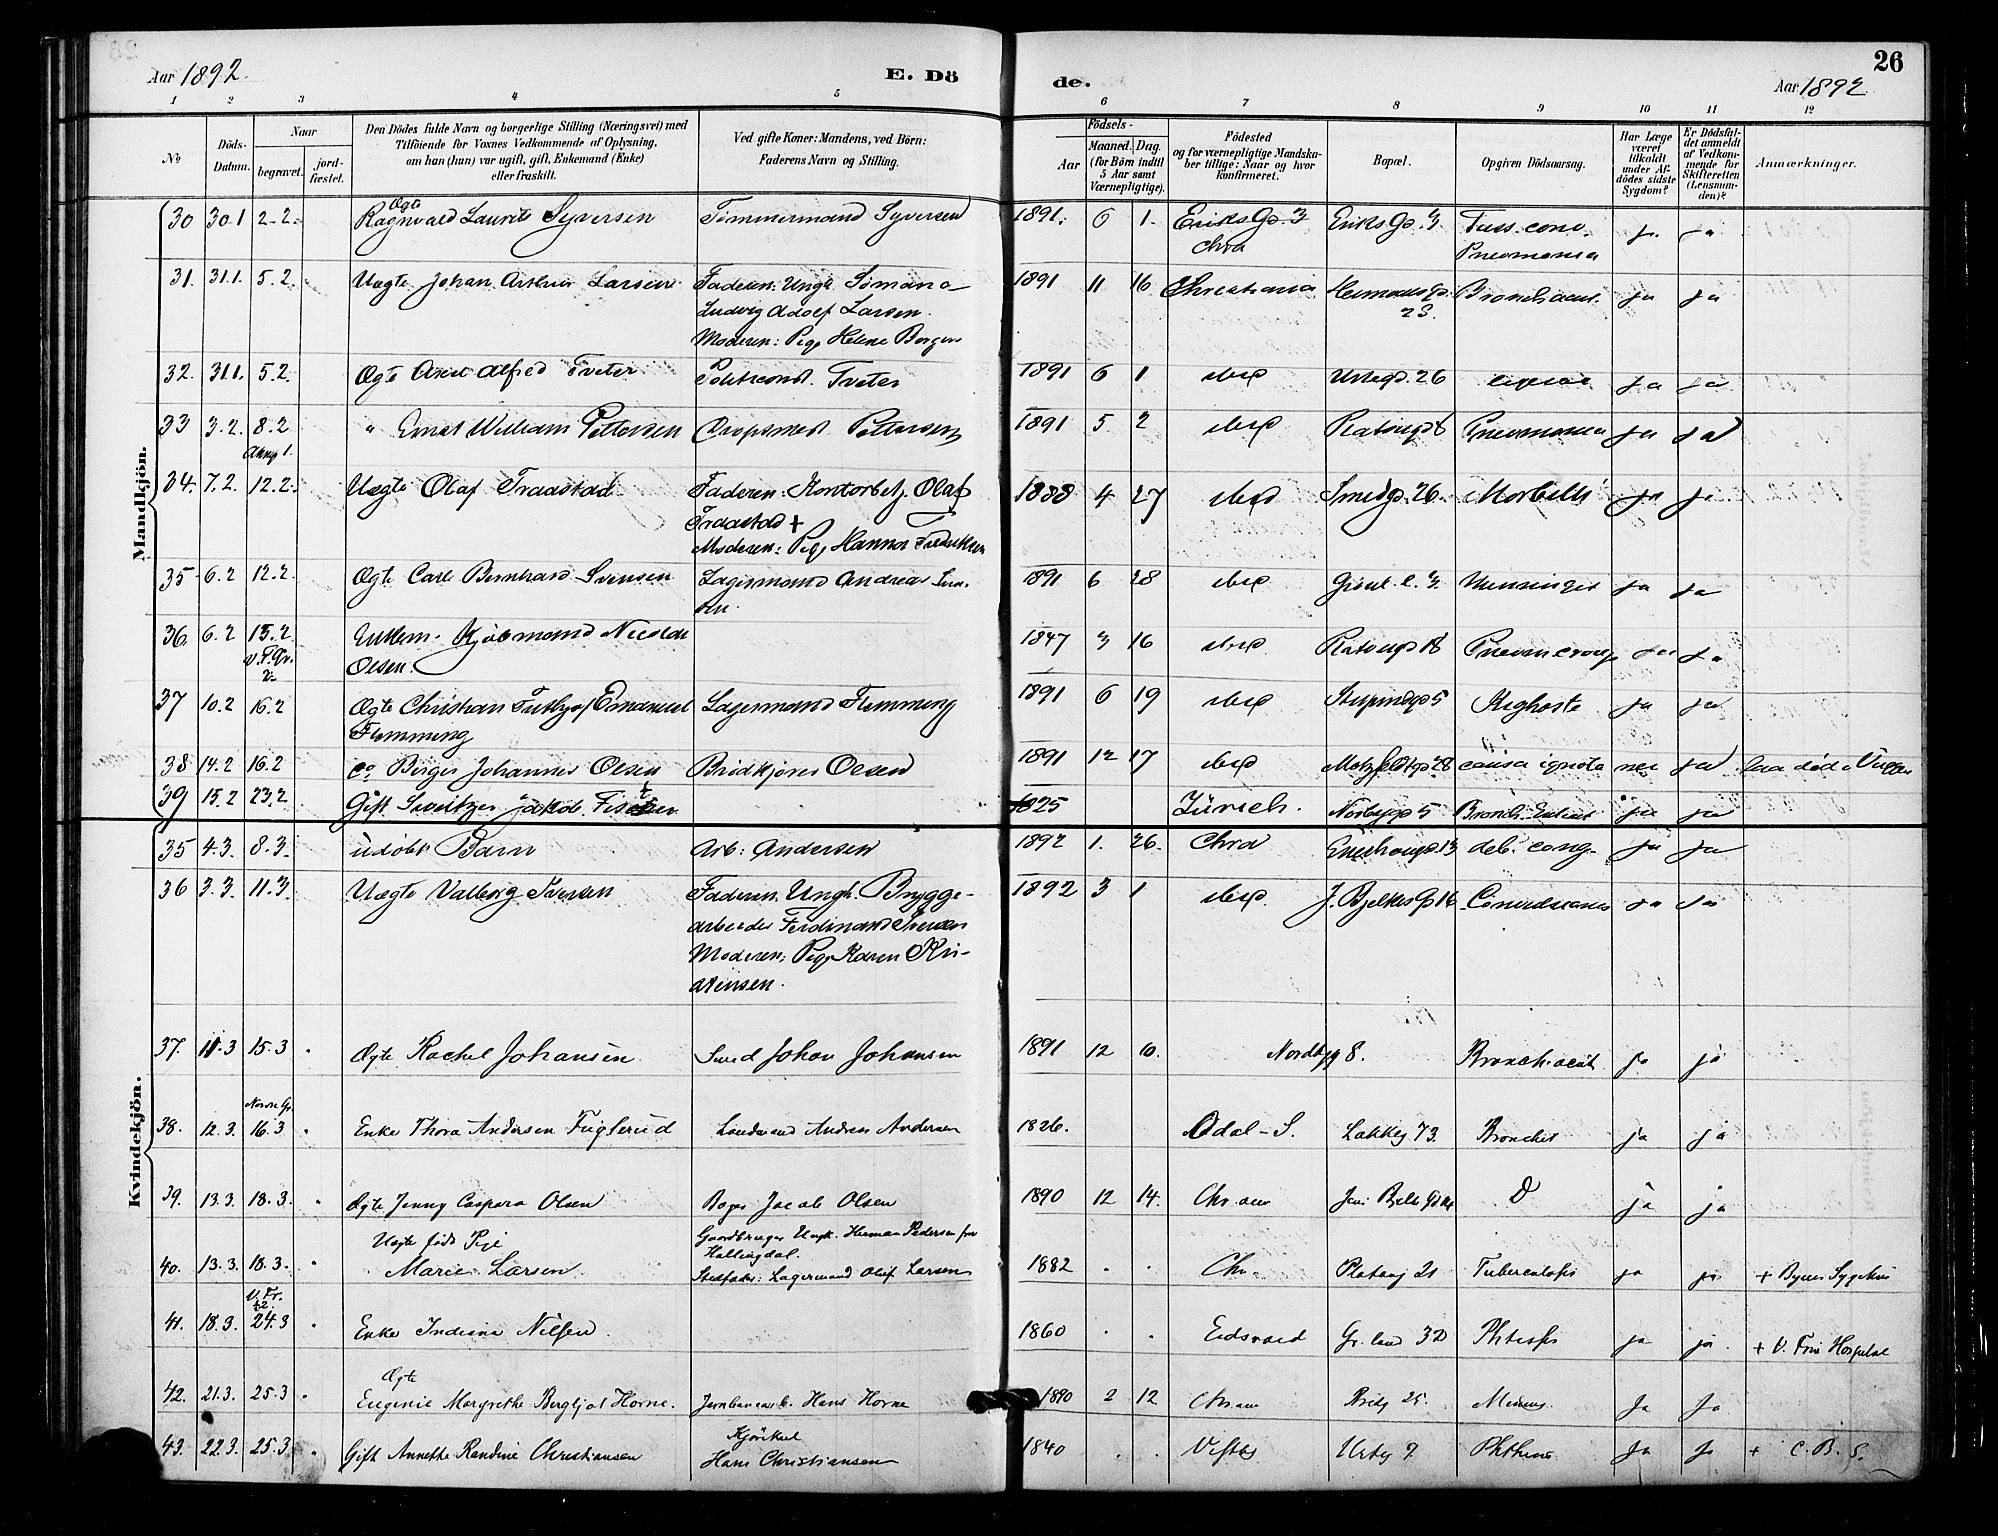 26
Aar 1892.
E. Dö
de.
Aar 1892
1 2 3 4 5 6 7 8 9 10 11 12
No
Döds-
Datum.
Naar
begravet.
jord-
fæstet.
Den Dödes fulde Navn og borgerlige Stilling (Næringsvei) med
Tilföiende for Voxnes Vedkommende af Oplysning,
om han (hun) var ugift, gift, Enkemand (Enke)
eller fraskilt.
Ved gifte Koner: Mandens, ved Börn:
Faderens Navn og Stilling.
Födsels-
Aar
Maaned. Dag.
(for Börn indtil
5 Aar samt
Værnepligtige).
Födested
og for værnepligtige Mandska-
ber tillige: Naar og hvor
konfirmeret.
Bopæl.
Opgiven Dödsaarsag.
Har Læge
været
tilkaldt
under Af-
dödes sidste
Sygdom?
Er Dödsfal-
det anmeldt
af Vedkom-
mende for
Skifteretten
(Lensman-
den)?
Anmærkninger.
Mandkjön.
30 30.1 2.2. Ægte
Ragnvald Laurits Syversen Tömmermand Syversen 1891. 6 1. Eriks Gd. 3 Eriks Gd. 3 Tuss. conv. ja ja
Chra Pneumonia
31. 31.1. 5.2. Uægte Johan Arthur Larsen Faderen: Ungk. Sömand 1891 11 16 Christiania Bronch. acut. ja ja
Ludvig Adolf Larsen.
Moderen: Pige Helene Borgen
32. 31.1. 5.2. Ægte Axel Alfred Tveter Politiconst. Tveter 1891 6 1 ibid Urtegd. 26 ja ja
33 3.2. 8.2 " Ernst William Pettersen Pettersen 1891 5 2 ibid Platougd 6 Pneumonia ja ja
34. 7.2. 12.2. Uægte Olaf Traastad Faderen: Kontorbetj. Olaf 1888 4 27 ibid Smedgd. 26. Morbilli ja ja
Traastad +
Moderen: Pige Hanna Fredriksen
35 6.2 12.2. Ægte Carl Bernhard Svensen Lagermand Andreas Sven- 1891 6 28 ibid Grönl. L. 3 Meningit ja ja
sen.
36. 6.2 15.2 Enkem. Kjöbmand Nicolai 1847 3 16 ibid Platougd 18 Pneum croup ja ja
V. F. Gr.
Olsen.
37 10.2 16.2 Ægte Christian Emanuel Lagermand Flemming 1891 6 19 ibid 5 Kighoste ja ja
Flemming
38 14.2 16.2 do Birger Johannes Olsen Brödkjörer Olsen 1891 12 17 ibid Motzfeldtgd 28 causa ignota nei ja laa död i Vuggen
39 15.2 23.2 Gift Jakob 1825 Zürich. Nordbygd 5 ja ja
Kvindekjön.
35 4.3. 8.3. udöbt Barn Arb: Andersen 1892 1. 26. Chra Enerhaugd 13 deb. cong. ja ja
36 3.3. 11.3 Uægte Valborg Iversen Faderen: Ungk. Brygge- 1892 3 1 ibid. J. Bjelkes Gd 16 ja ja
arbeider Ferdinand Iversen
Moderen: Pige Karen Kri-
stensen.
37. 11.3 15.3 " Ægte Rachel Johansen Smed Johan Johansen 1891 12 10. Nordbyg 8. Bronch. acut. ja ja
38. 12.3. 16.3 " Enke Thora Andersen Fuglerud Landmand Andreas Andersen 1826. Odal - S. Lakkeg 73. Bronchit ja ja
Nordre Gr.
39. 13.3. 18.3. " Ægte Jenny Caspara Olsen Bager Jacob Olsen 1890 12 14. Chr.ania D ja ja
40. 13.3. 18.3. " Uægte född Pige Gaardbruger Ungk. Herman Pedersen fra
Marie Larsen. Hallingdal. 1882 . . Chr. Platoug 21 Tuberculosis ja ja + Byens Sygehus
Stedfader: Lagermand Oluf Larsen
V. Fr.
41. 18.3. 24.3 " Enke Indiana Nilsen. 1860 . . Eidsvold Gr.land 32 Phthisis ja ja. + V. Frie Hospital
42. 21.3. 25.3 " Ægte
Eugenie Margrethe Bergljot Horne. Jernbanearb. Hans Horne 1890 2 12 Chr.ania 25. Ja Ja
43. 22.3. 25.3 " Gift Annette Randine Christiansen Kjörekarl
Hans Christiansen 1840 . . Urteg 7 Ja Ja + C. B. S.